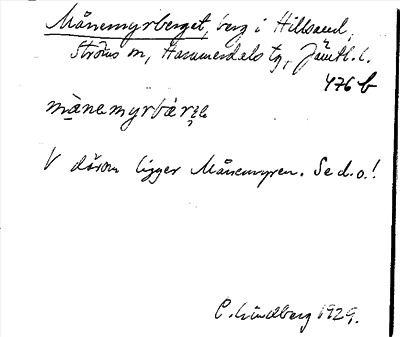 Månemyrberget, berg i Hillsand,
Ströms sn, Hammerdals tg, Jämtl. l.
476 b
månemyrbärʒe
V därom ligger Månemyren. Se d.o.!
C. Lindberg 1929.